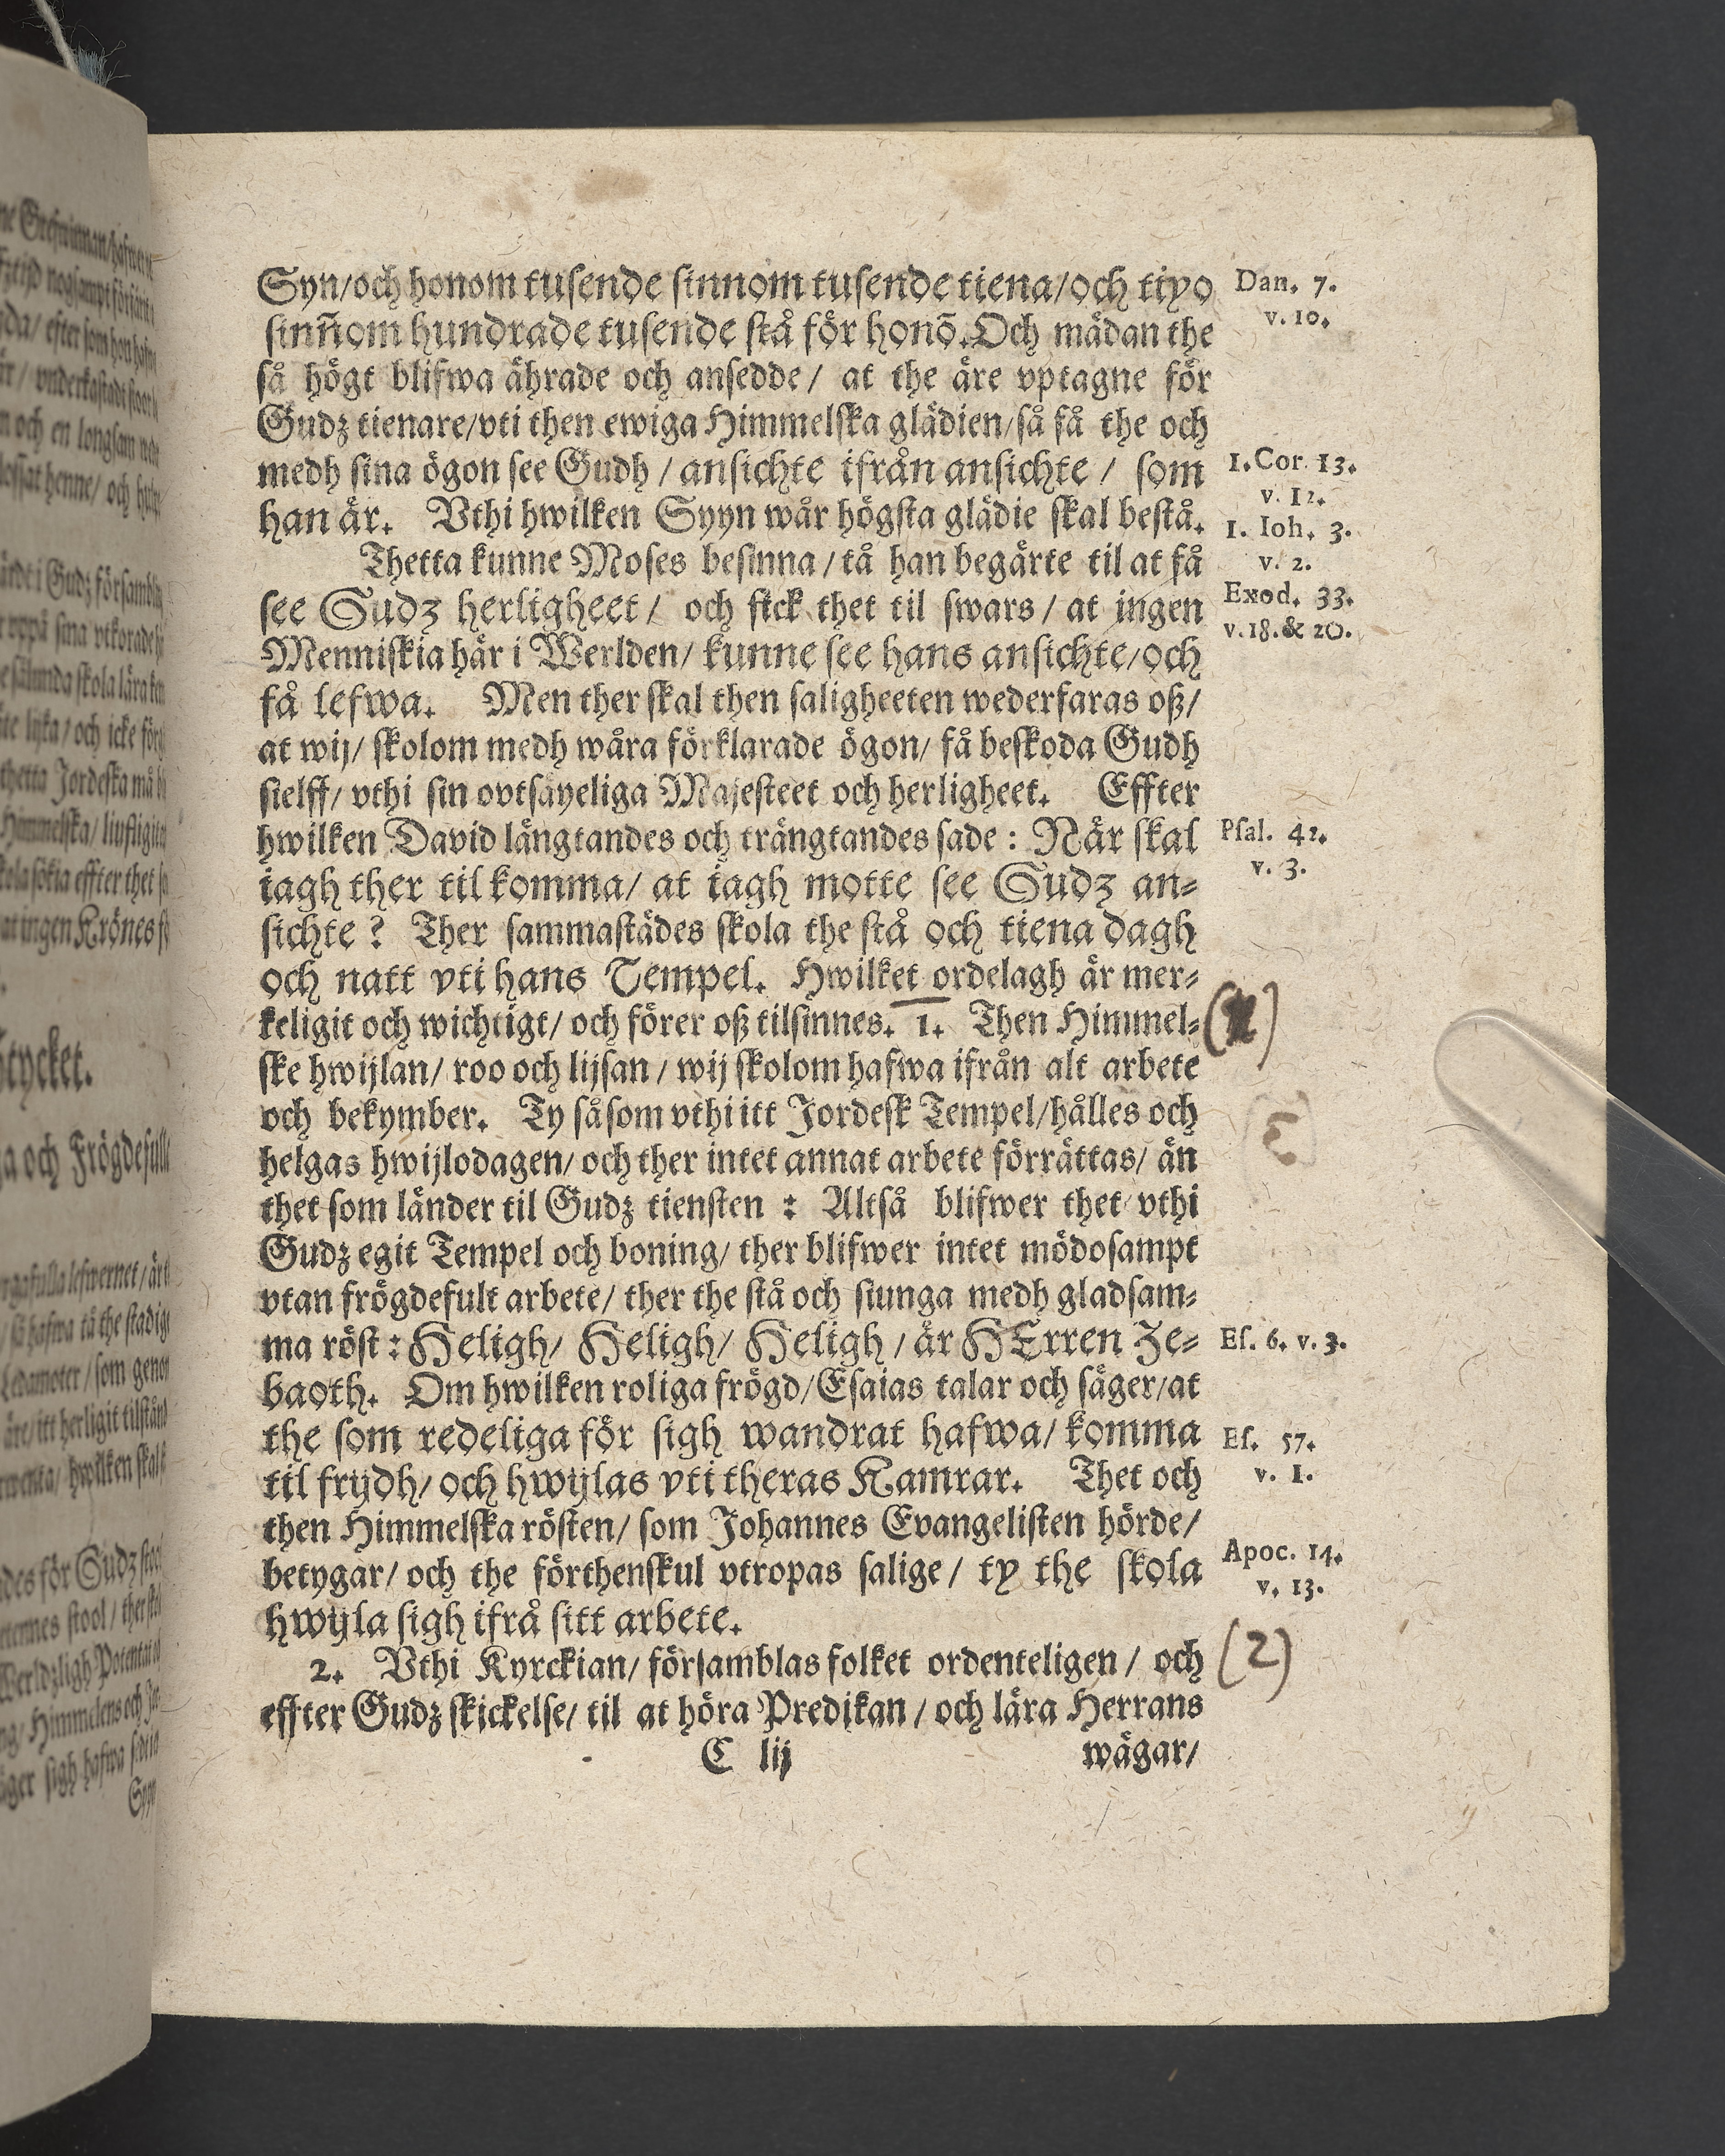 Syn/och honom tusende sinnom tusende tiena/och tiyo
sinn̄om hundrade tusende stå för honō. Och mädan the
så högt blifwa ährade och ansedde/ at the äre vptagne för
Gudz tienare/vti then ewiga Himmelska glädien/så få the och
medh sina ögon see Gudh / ansichte ifrån ansichte / som
han är. Vthi hwilken Syyn wår högsta glädie skal bestå.
Thetta kunne Moses besinna / tå han begärte til at få
see Gudz herligheet / och fick thet til swars / at ingen
Menniskia här i Werlden/ kunne see hans ansichte/och
få lefwa. Men ther skal then saligheeten wederfaras oß/
at wij/ skolom medh wåra förklarade ögon/ få beskoda Gudh
sielff/ vthi sin ovtsäyeliga Majesteet och herligheet. Effter
hwilken David längtandes och trängtandes sade : När skal
iagh ther til komma/ at iagh motte see Gudz an-
sichte ? Ther sammastädes skola the stå och tiena dagh
och natt vti hans Tempel. Hwilket ordelagh är mer-
keligit och wichtigt/ och förer oß tilsinnes. 1. Then Himmel-
ske hwijlan/ roo och lijsan / wij skolom hafwa ifrån alt arbete
och bekymber. Ty såsom vthi itt Jordesk Tempel/hålles och
helgas hwijlodagen/ och ther intet annat arbete förrättas/ än
thet som länder til Gudz tiensten : Altså blifwer thet vthi
Gudz egit Tempel och boning/ ther blifwer intet mödosampt
vtan frögdefult arbete/ ther the stå och siunga medh gladsam-
ma röst : Heligh/ Heligh/ Heligh / är HErren Ze-
baoth. Om hwilken roliga frögd/Esaias talar och säger/at
the som redeliga för sigh wandrat hafwa/ komma
til frijdh/ och hwijlas vti theras Kamrar. Thet och
then Himmelska rösten/ som Johannes Evangelisten hörde/
betygar/ och the förthenskul vtropas salige / ty the skola
hwijla sigh ifrå sitt arbete.
2. Vthi Kyrckian/ församblas folket ordenteligen / och
effter Gudz skickelse/ til at höra Predikan / och lära Herrans
C iij
wägar/
Dan. 7.
v. 10.
1. Cor. 13.
v. 12.
1. Ioh. 3.
v. 2.
Exod. 33.
v. 18. & 20.
Psal. 42.
v. 3.
Es. 6. v. 3.
Es. 57.
v. 1.
Apoc. 14.
v. 13.
(2)